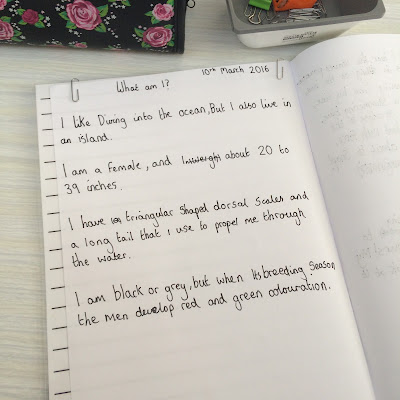 What am I?
10th March 2016
I like Diving into the ocean, But I also live in
an island.
I am a female, and about 20 to
39 inches.
I have triangular shaped dorsal scales and
a long tail that I use to propel me through
the water.
I am black or grey, but when its breeding season
the men develop red and green colouration.